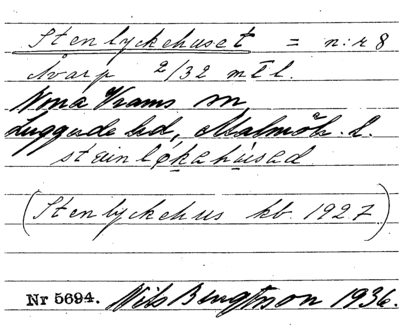 Stenlyckehuset = n:r 8
Åvarp 2/32 mtl.
Norra Vrams sn,
Luggude hd, Malmöh. l.
stainløkahúsad
(Stenlyckehus kb. 1927)
Nr 5694. Nils Bengtsson 1936.